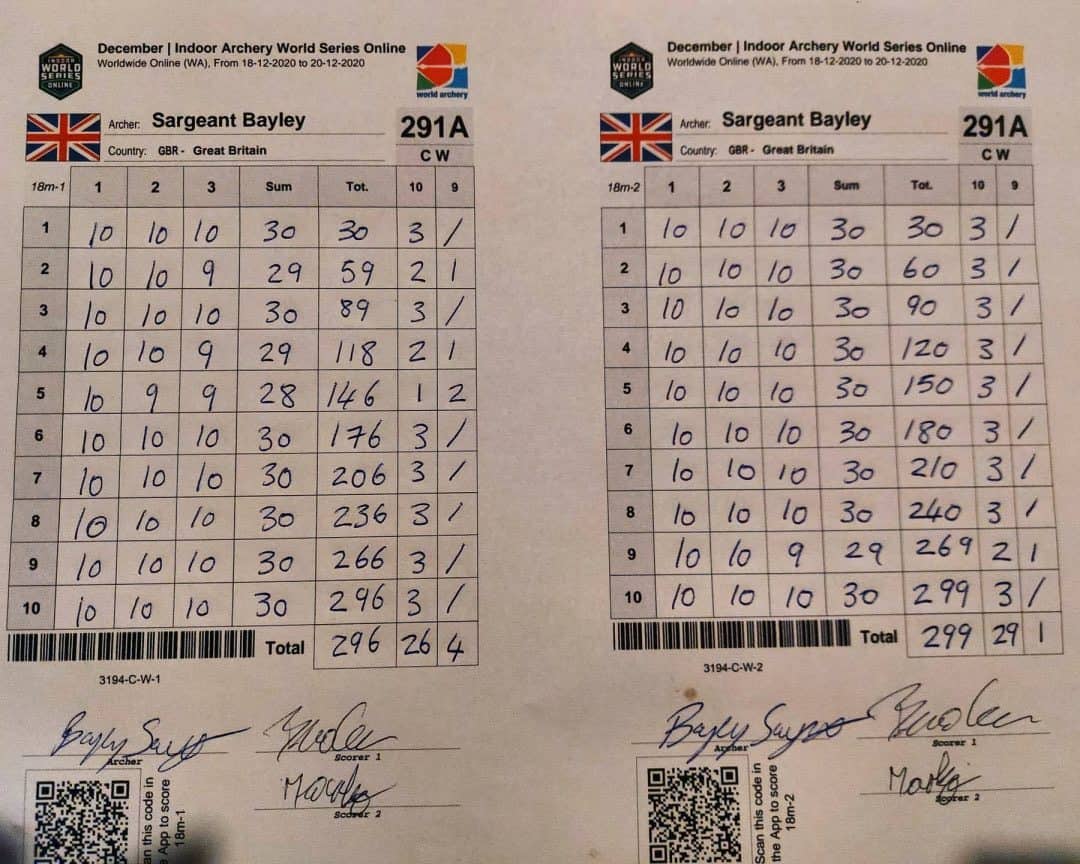 INDOOR
WORLD
SERIES
ONLINE
December | Indoor Archery World Series Online
Worldwide Online (WA), From 18-12-2020 to 20-12-2020
world archery
Archer: Sargeant Bayley
Country: GBR - Great Britain
291A
C W
18m-1 1 2 3 Sum Tot. 10 9
1 10 10 10 30 30 3 /
2 10 10 9 29 59 2 1
3 10 10 10 30 89 3 /
4 10 10 9 29 118 2 1
5 10 9 9 28 146 1 2
6 10 10 10 30 176 3 /
7 10 10 10 30 206 3 /
8 10 10 10 30 236 3 /
9 10 10 10 30 266 3 /
10 10 10 10 30 296 3 /
Total 296 26 4
3194-C-W-1
Archer
Scorer 1
Scorer 2
an this code in
App to score
18m-1
INDOOR
WORLD
SERIES
ONLINE
December | Indoor Archery World Series Online
Worldwide Online (WA), From 18-12-2020 to 20-12-2020
world archery
Archer: Sargeant Bayley
Country: GBR - Great Britain
291A
C W
18m-2 1 2 3 Sum Tot. 10 9
1 10 10 10 30 30 3 /
2 10 10 10 30 60 3 /
3 10 10 10 30 90 3 /
4 10 10 10 30 120 3 /
5 10 10 10 30 150 3 /
6 10 10 10 30 180 3 /
7 10 10 10 30 210 3 /
8 10 10 10 30 240 3 /
9 10 10 9 29 269 2 1
10 10 10 10 30 299 3 /
Total 299 29 1
3194-C-W-2
Archer
Scorer 1
Scorer 2
Scan this code in
the App to score
18m-2